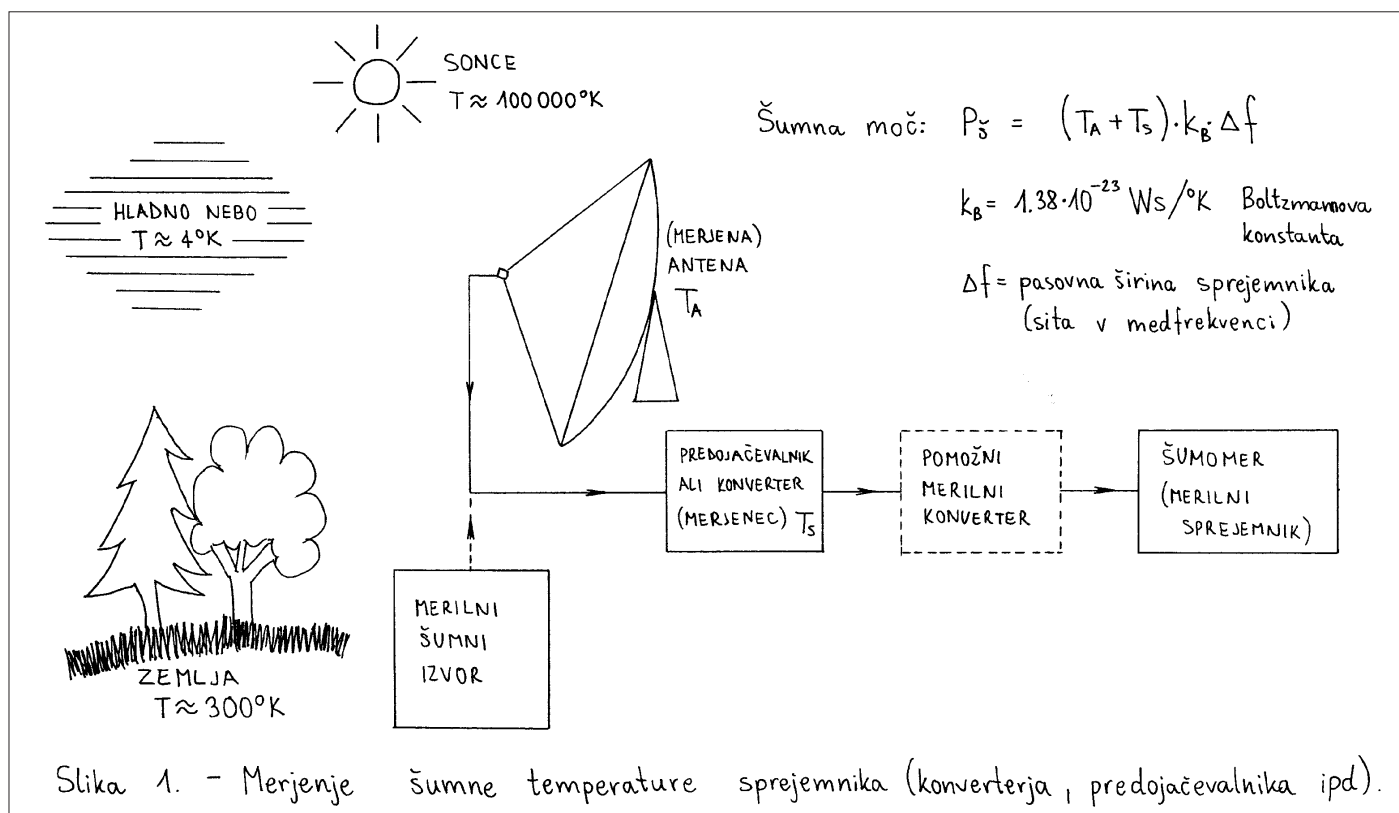 SONCE
T ≈ 100 000°K
Šumna moč: Pš = (TA + TS)·kB·Δf
kB = 1.38·10^-23 Ws/°K Boltzmannova
konstanta
Δf = pasovna širina sprejemnika
(sita v medfrekvenci)
HLADNO NEBO
T ≈ 4°K
(MERJENA)
ANTENA
TA
PREDOJAČEVALNIK
ALI KONVERTER
(MERJENEC) TS
POMOŽNI
MERILNI
KONVERTER
ŠUMOMER
(MERILNI
SPREJEMNIK)
MERILNI
ŠUMNI
IZVOR
ZEMLJA
T ≈ 300°K
Slika 1. - Merjenje šumne temperature sprejemnika (konverterja, predojačevalnika ipd).